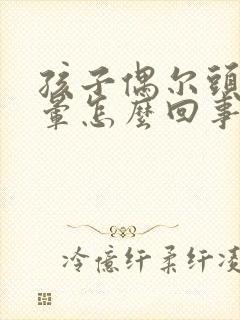 孩子偶尔頭
暈怎麼回事
冷億纤柔纤凌